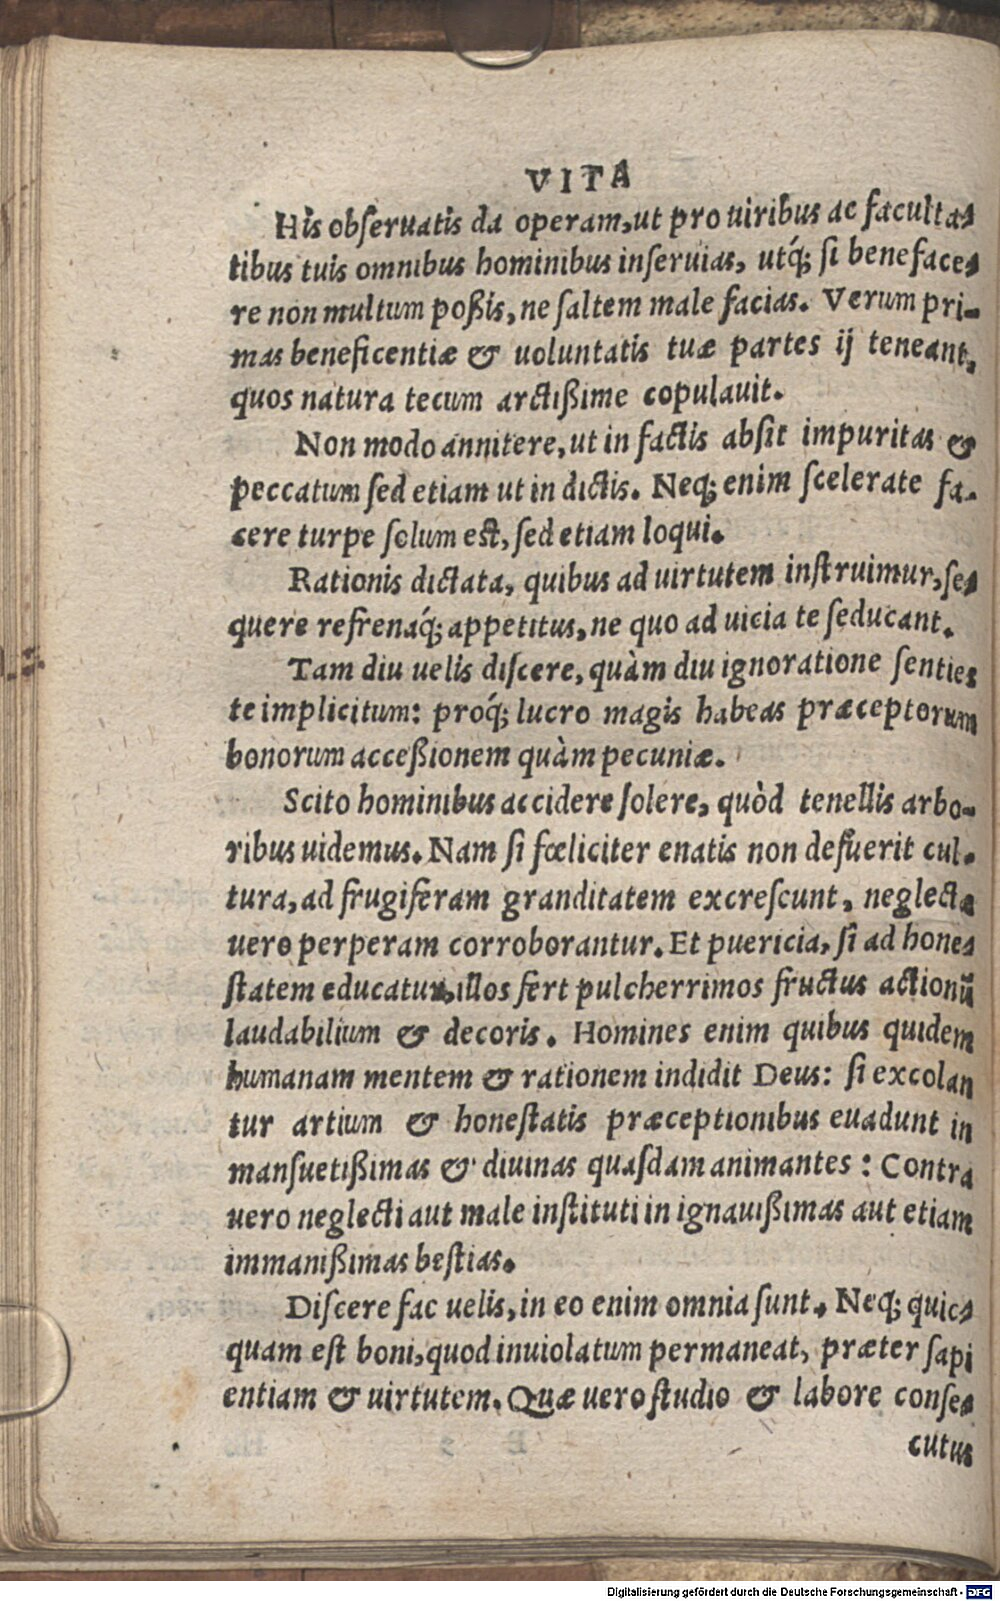 VITA
His obſeruatis da operam, ut pro uiribus ac faculta-
tibus tuis omnibus hominibus inſeruias, utq́; ſi beneface-
re non multum poßis, ne ſaltem male facias. Verum pri-
mas beneficentiæ & uoluntatis tuæ partes ij teneant,
quos natura tecum arctißime copulauit.
Non modo annitere, ut in factis abſit impuritas &
peccatum ſed etiam ut in dictis. Neq; enim ſcelerate fa-
cere turpe ſolum eſt, ſed etiam loqui.
Rationis dictata, quibus ad uirtutem inſtruimur, ſe-
quere refrenaq́; appetitus, ne quo ad uicia te ſeducant.
Tam diu uelis diſcere, quàm diu ignoratione ſenties
te implicitum: proq́; lucro magis habeas præceptorum
bonorum acceßionem quàm pecuniæ.
Scito hominibus accidere ſolere, quòd tenellis arbo-
ribus uidemus. Nam ſi fœliciter enatis non defuerit cul-
tura, ad frugiferam granditatem excreſcunt, neglecta
uero perperam corroborantur. Et puericia, ſi ad hone-
ſtatem educatur, illos fert pulcherrimos fructus actionū
laudabilium & decoris. Homines enim quibus quidem
humanam mentem & rationem indidit Deus: ſi excolan
tur artium & honeſtatis præceptionibus euadunt in
manſuetißimas & diuinas quaſdam animantes: Contra
uero neglecti aut male inſtituti in ignauißimas aut etiam
immanißimas beſtias.
Diſcere fac uelis, in eo enim omnia ſunt. Neq; quic-
quam eſt boni, quod inuiolatum permaneat, præter ſapi
entiam & uirtutem. Quæ uero ſtudio & labore conſe-
cutus
Digitalisierung gefördert durch die Deutsche Forschungsgemeinschaft - DFG